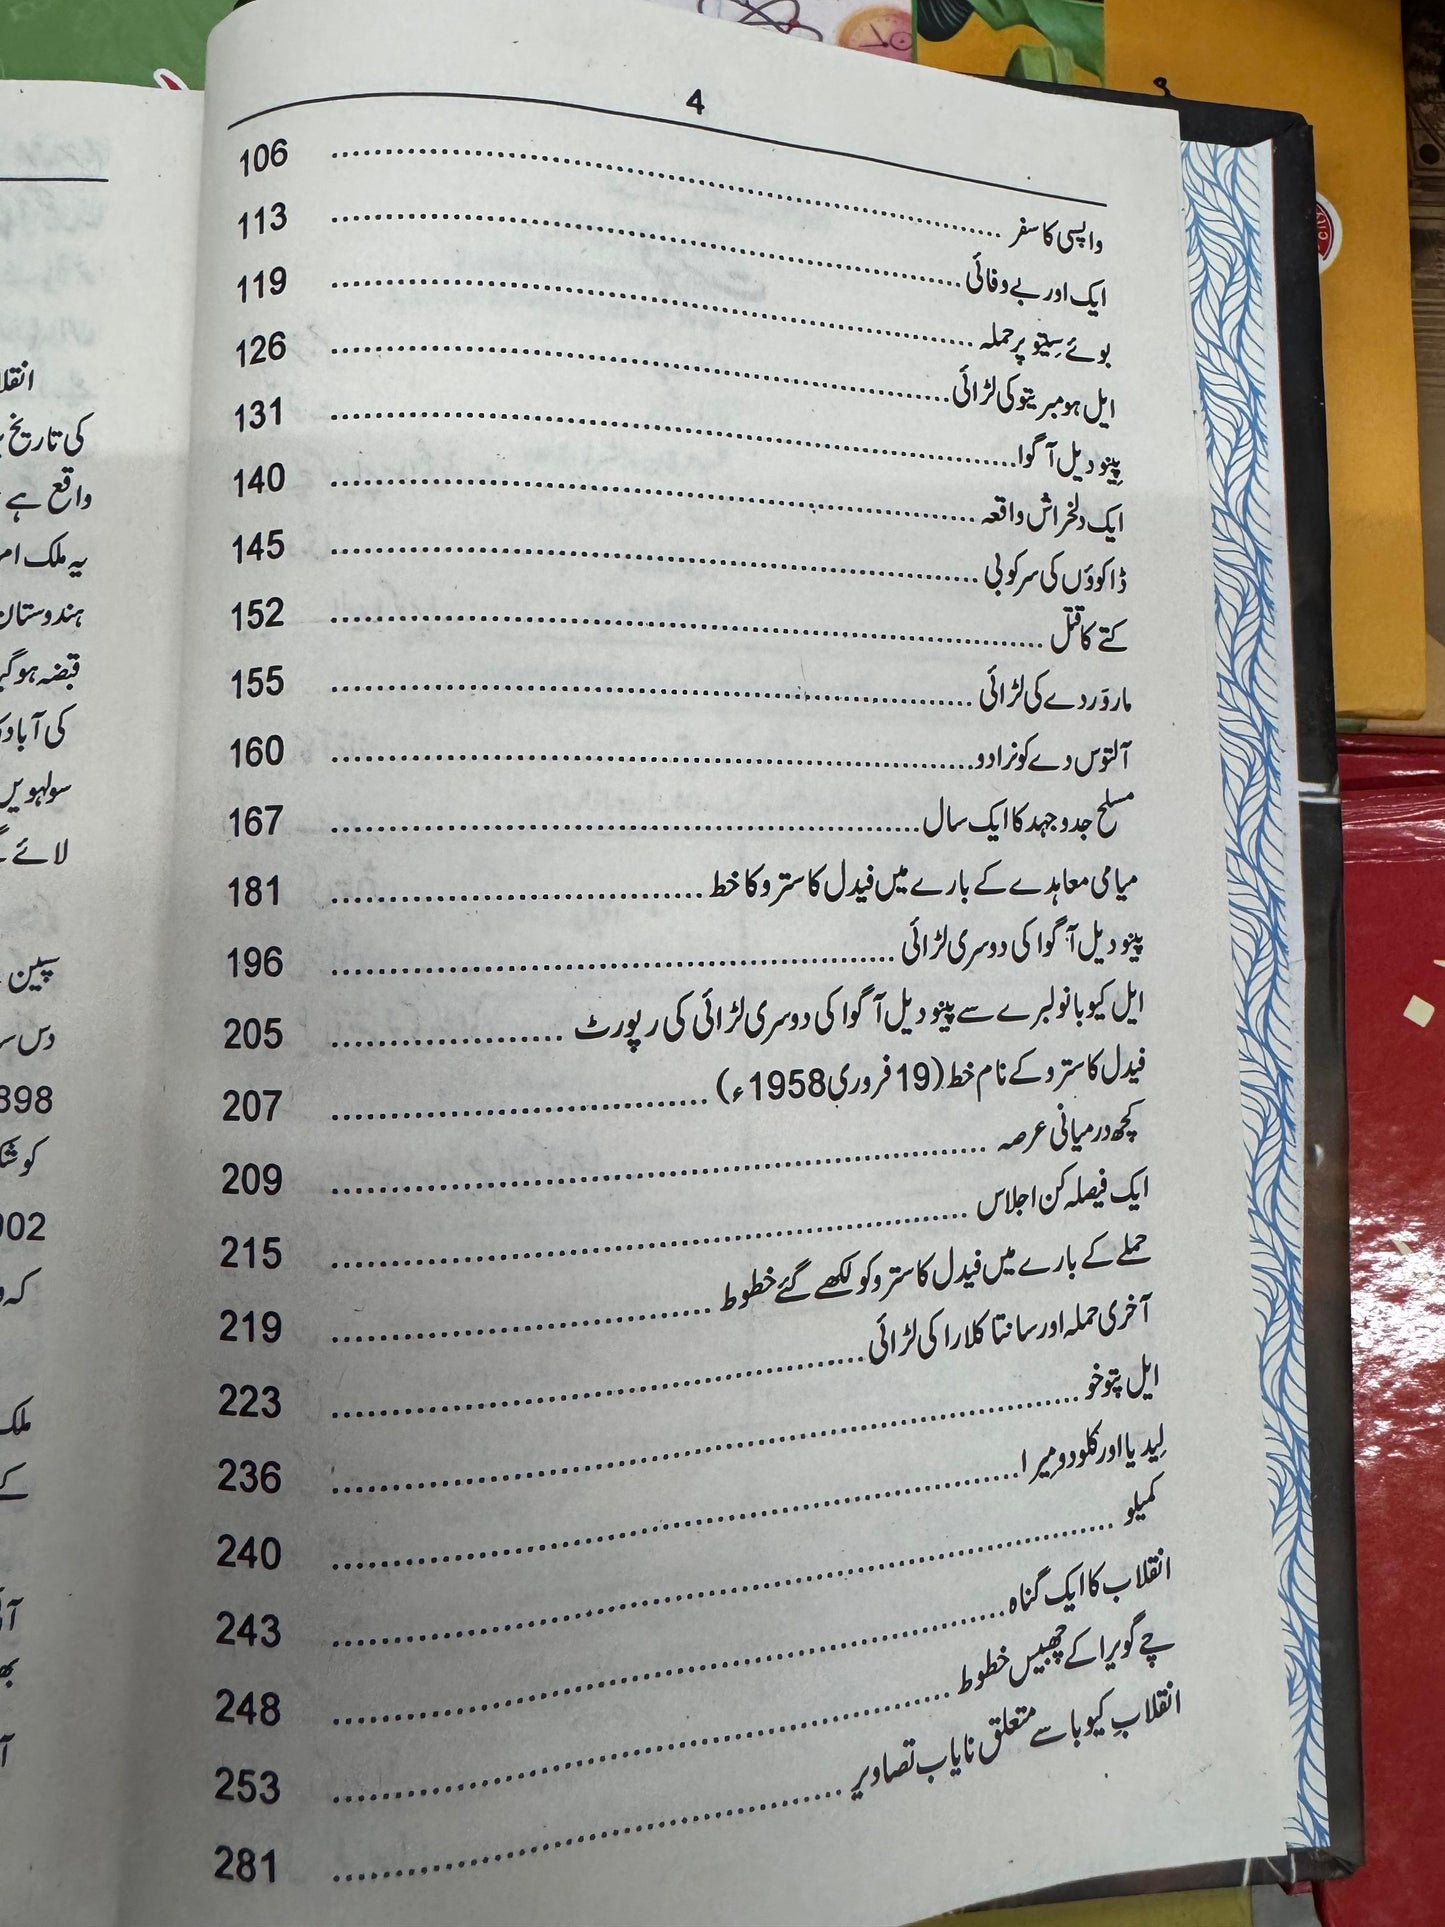 4
واپسی کا سفر 106
ایک اور بے وفائی 113
بوئے سیتو پر حملہ 119
ایل ہومبریتو کی لڑائی 126
پِینو دیل آگوا 131
ایک دلخراش واقعہ 140
ڈاکوؤں کی سرکوبی 145
کتے کا قتل 152
ماروَردے کی لڑائی 155
آلتوس دے کونرادو 160
مسلح جدوجہد کا ایک سال 167
میامی معاہدے کے بارے میں فیدل کاسترو کا خط 181
پینو دیل آگوا کی دوسری لڑائی 196
ایل کیوبانو لبرے سے پینو دیل آگوا کی دوسری لڑائی کی رپورٹ 205
فیدل کاسترو کے نام خط (19 فروری 1958ء) 207
کچھ درمیانی عرصہ 209
ایک فیصلہ کن اجلاس 215
حملے کے بارے میں فیدل کاسترو کو لکھے گئے خطوط 219
آخری حملہ اور سانتا کلارا کی لڑائی 223
ایل پتوخو 236
لِیدیا اور کلودومِیرا 240
کمیلو 243
انقلاب کا ایک گناہ 248
چے گویرا کے چھبیس خطوط 253
انقلابِ کیوبا سے متعلق نایاب تصاویر 281
کی تاریخ
واقع ہے
یہ ملک
ہندوستان
قبضہ ہو
سولہویں
لائے
سپین
898
902
ملک
city